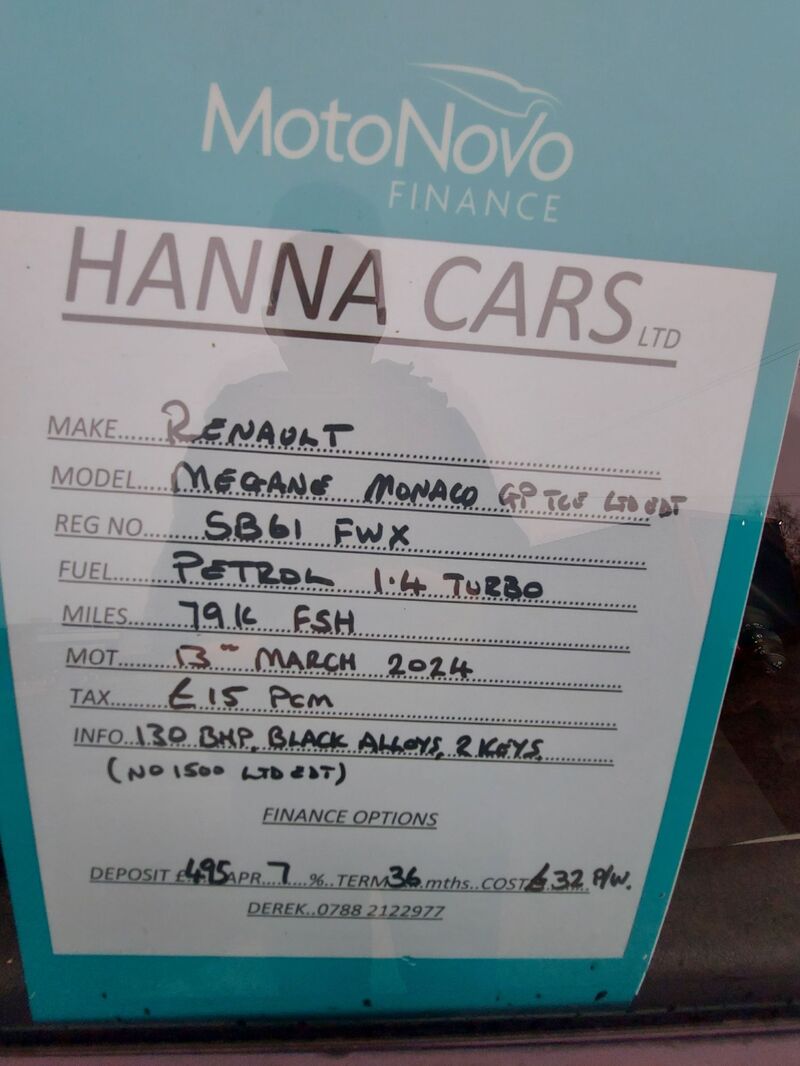 MotoNovo
FINANCE
HANNA CARS LTD
MAKE......RENAULT
MODEL.....MEGANE MONACO GP TCE LTD EDT
REG NO....SB61 FWX
FUEL......PETROL 1.4 TURBO
MILES.....79K FSH
MOT.......13TH MARCH 2024
TAX.......£15 PCM
INFO..130 BHP, BLACK ALLOYS, 2 KEYS.
(NO 1500 LTD EDT)
FINANCE OPTIONS
DEPOSIT £495 APR...7....%..TERM 36.mths..COST £32 P/W.
DEREK..0788 2122977